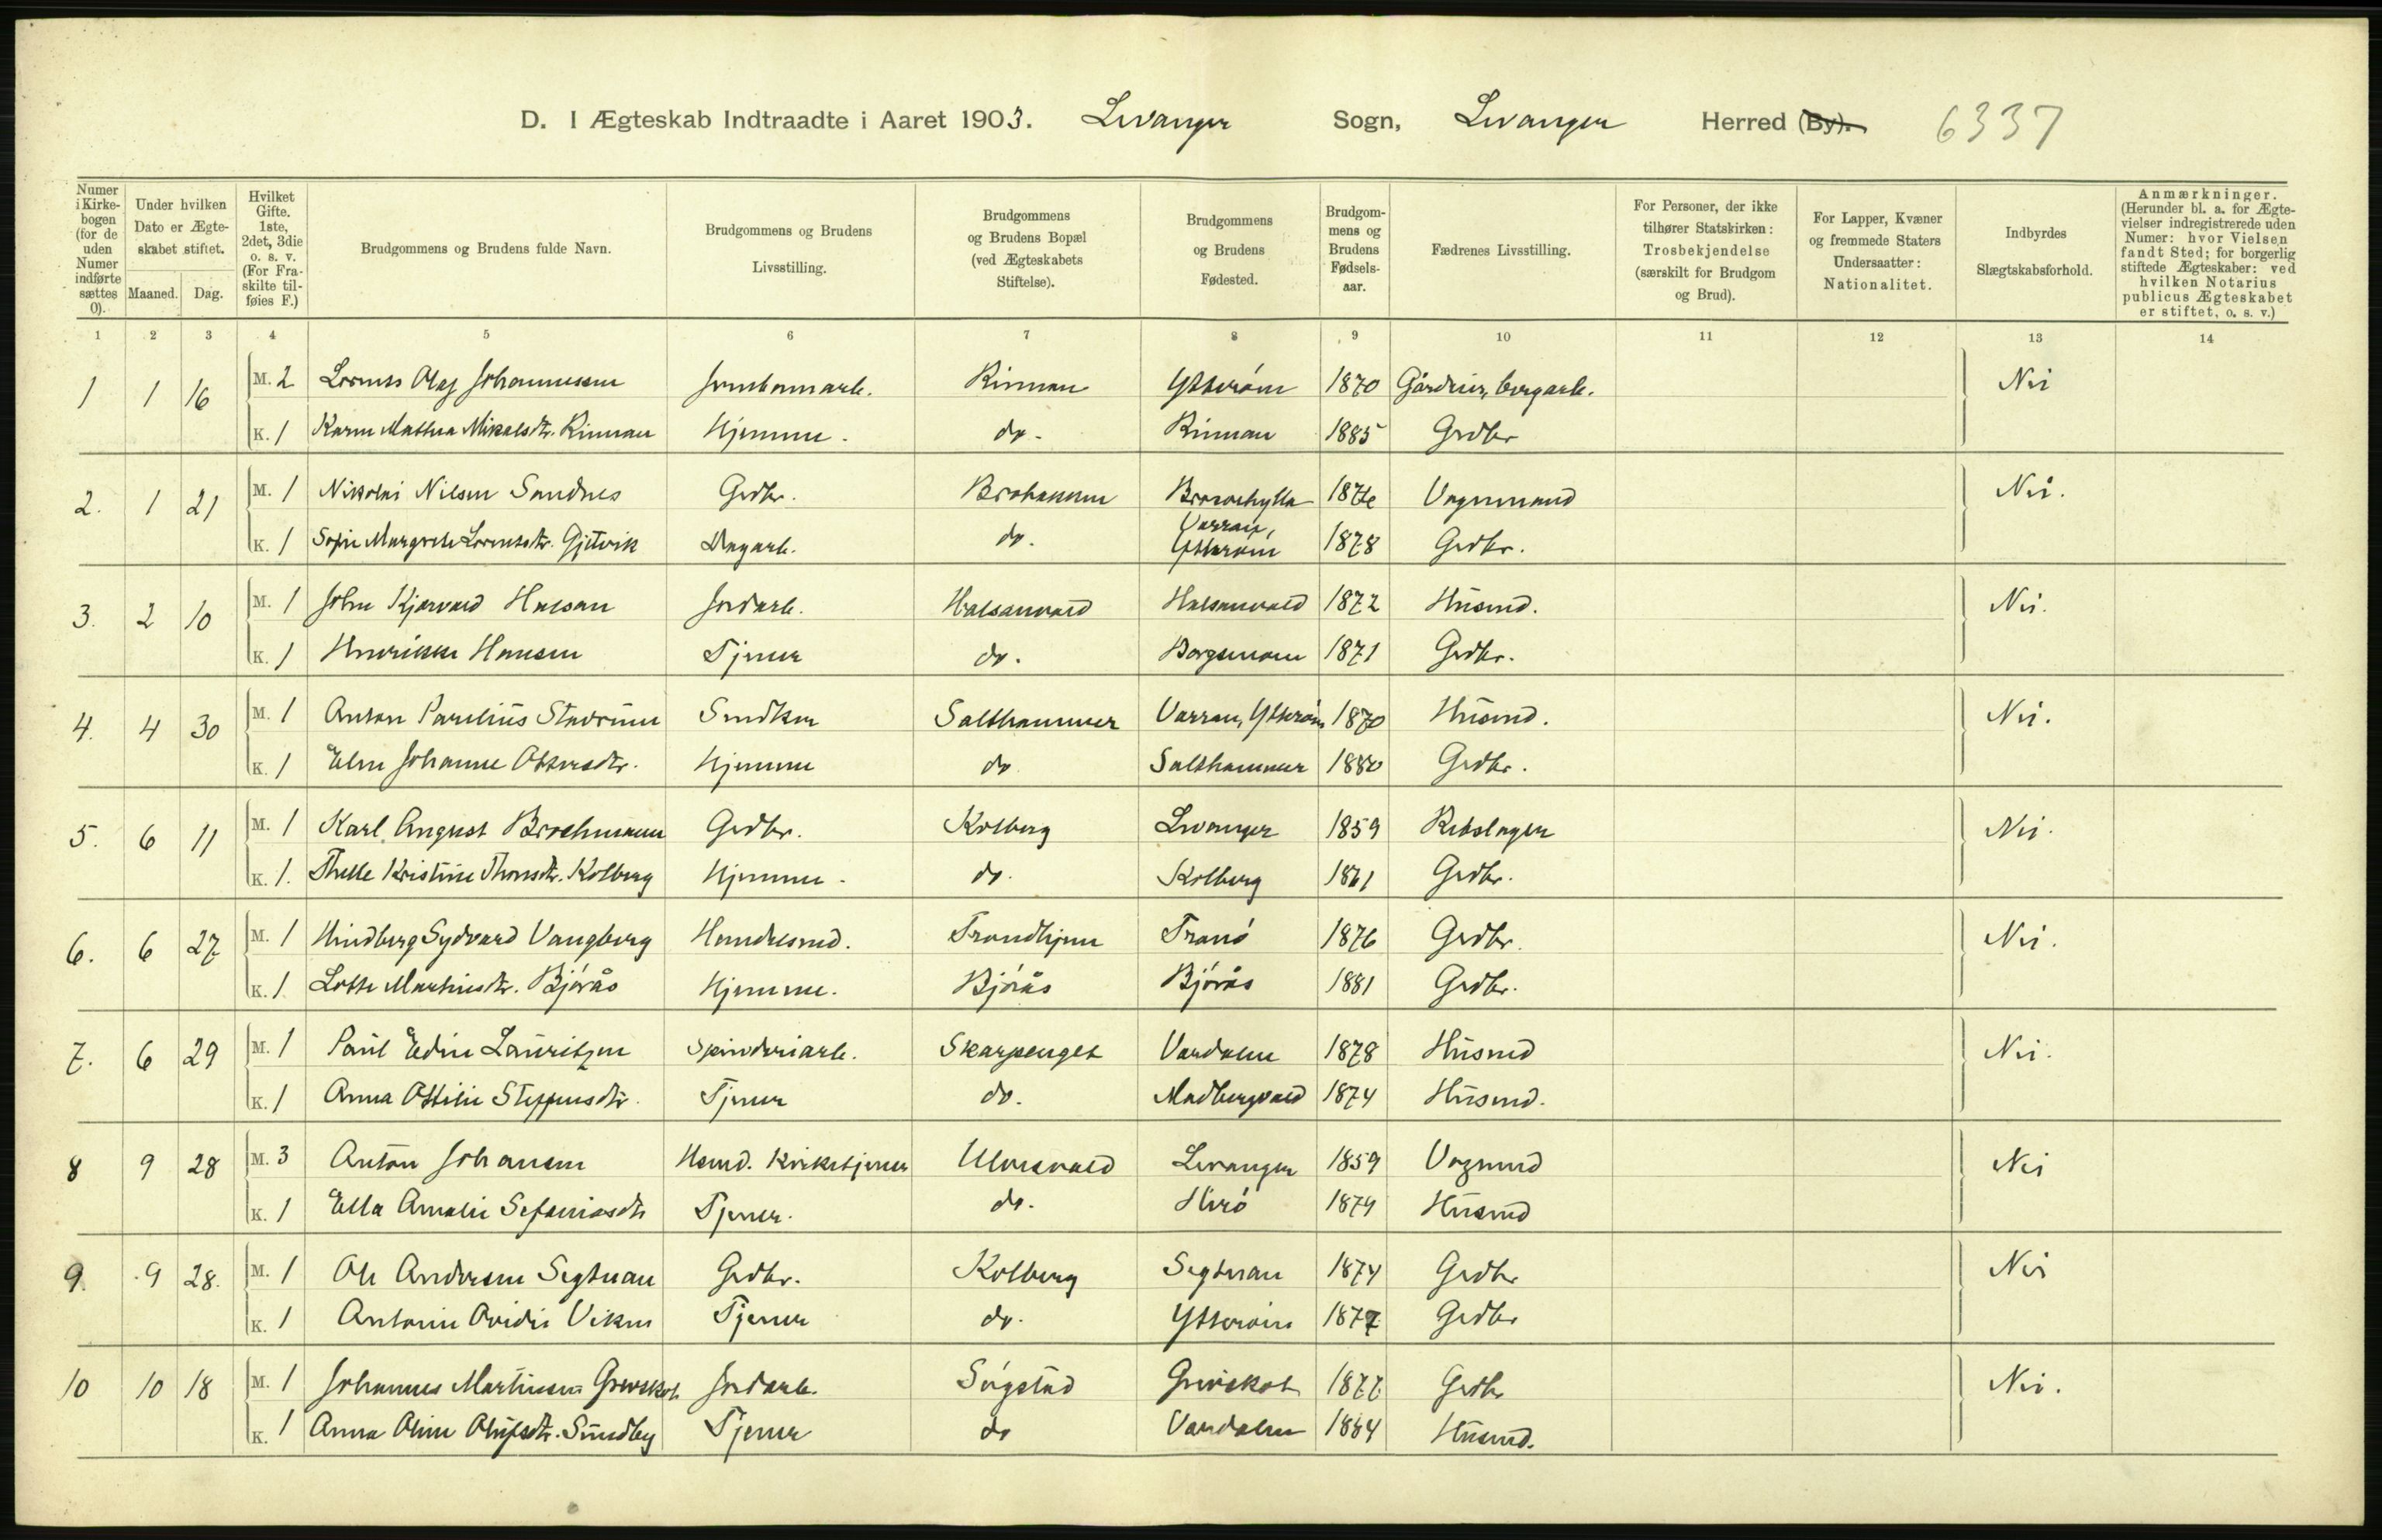 D. I Ægteskab Indtraadte i Aaret 1903. Levanger Sogn, Levanger Herred (By). 6337
Numer i Kirkebogen (for de uden Numer indførte sættes 0). Under hvilken Dato er Ægteskabet stiftet. Maaned. Dag. Hvilket Gifte. 1ste, 2det, 3die o. s. v. (For Fraskilte tilføies F.) Brudgommens og Brudens fulde Navn. Brudgommens og Brudens Livsstilling. Brudgommens og Brudens Bopæl (ved Ægteskabets Stiftelse). Brudgommens og Brudens Fødested. Brudgommens og Brudens Fødselsaar. Fædrenes Livsstilling. For Personer, der ikke tilhører Statskirken: Trosbekjendelse (særskilt for Brudgom og Brud). For Lapper, Kvæner og fremmede Staters Undersaatter: Nationalitet. Indbyrdes Slægtskabsforhold. Anmærkninger. (Herunder bl. a. for Ægtevielser indregistrerede uden Numer: hvor Vielsen fandt Sted; for borgerlig stiftede Ægteskaber: ved hvilken Notarius publicus Ægteskabet er stiftet, o. s. v.)
1 2 3 4 5 6 7 8 9 10 11 12 13 14
1 1 16 M. 2 Lorents Olaf Johannessen Jernbanearb. Rinnan Ytterøen 1870 Gårdeier, bergarb. Nei
K. 1 Karen Mathea Mikalsdtr. Rinnan Hjemme. do. Rinnan 1885 Grdbr
2. 1 21 M. 1 Nikolai Nilsen Sandnes Grdbr. 1876 Vognmand Nei.
K. 1 Sofie Margrete Lorentsdtr. Gjetvik Dagarb. do. Verran, Ytterøen 1878 Grdbr.
3. 2 10 M. 1 John Kjørvald Halsan Jordarb. Halsanvald Halsanvald 1872 Husmd. Nei.
K. 1 Henrikke Hansen Tjener do. 1871 Grdbr.
4. 4 30 M. 1 Anton Parelius Stavrum Snedker Salthammer Verran, Ytterøen 1870 Husmd. Nei.
K. 1 Elen Johanne Ottersdtr. Hjemme do Salthammer 1880 Grdbr.
5. 6 11 M. 1 Karl August Brochmann Grdbr. Kolberg Levanger 1859 Rebslager Nei.
K. 1. Kristine Thomsdtr. Kolberg Hjemme. do. Kolberg 1861 Grdbr.
6. 6 27 M. 1 Hindberg Sydvard Vangberg Handelsmd. Trondhjem Tranø 1876 Grdbr. Nei.
K. 1 Lotte Martinsdtr. Bjørås Hjemme. Bjørås Bjørås 1881 Grdbr.
7. 6 29 M. 1 Paul Edin Lauritzen Spinderiarb. Skarpenget Værdalen 1878 Husmd Nei.
K. 1 Anna Ottilie Steffensdtr. Tjener do. Madbergvald 1874 Husmd.
8 9 28 M. 3 Anton Johansen Hsmd. Kirketjener Ulvesvald Levanger 1859 Vognmd Nei
K. 1 Ella Amalie Sefaniasdtr Tjener. do. Herø 1874 Husmd
9. 9 28. M. 1 Ole Andersen Segtnan Grdbr. Kolberg Segtnan 1874 Grdbr Nei
K. 1 Antonie Ovidie Viken Tjener do. Ytterøen 1877 Grdbr
10 10 18 M. 1 Johannes Martinsen Grevskot Jordarb. Søgstad Grevskot 1877 Grdbr Nei.
K. 1 Anna Oline Olufsdtr. Sundby Tjener do Værdalen 1884 Husmd.